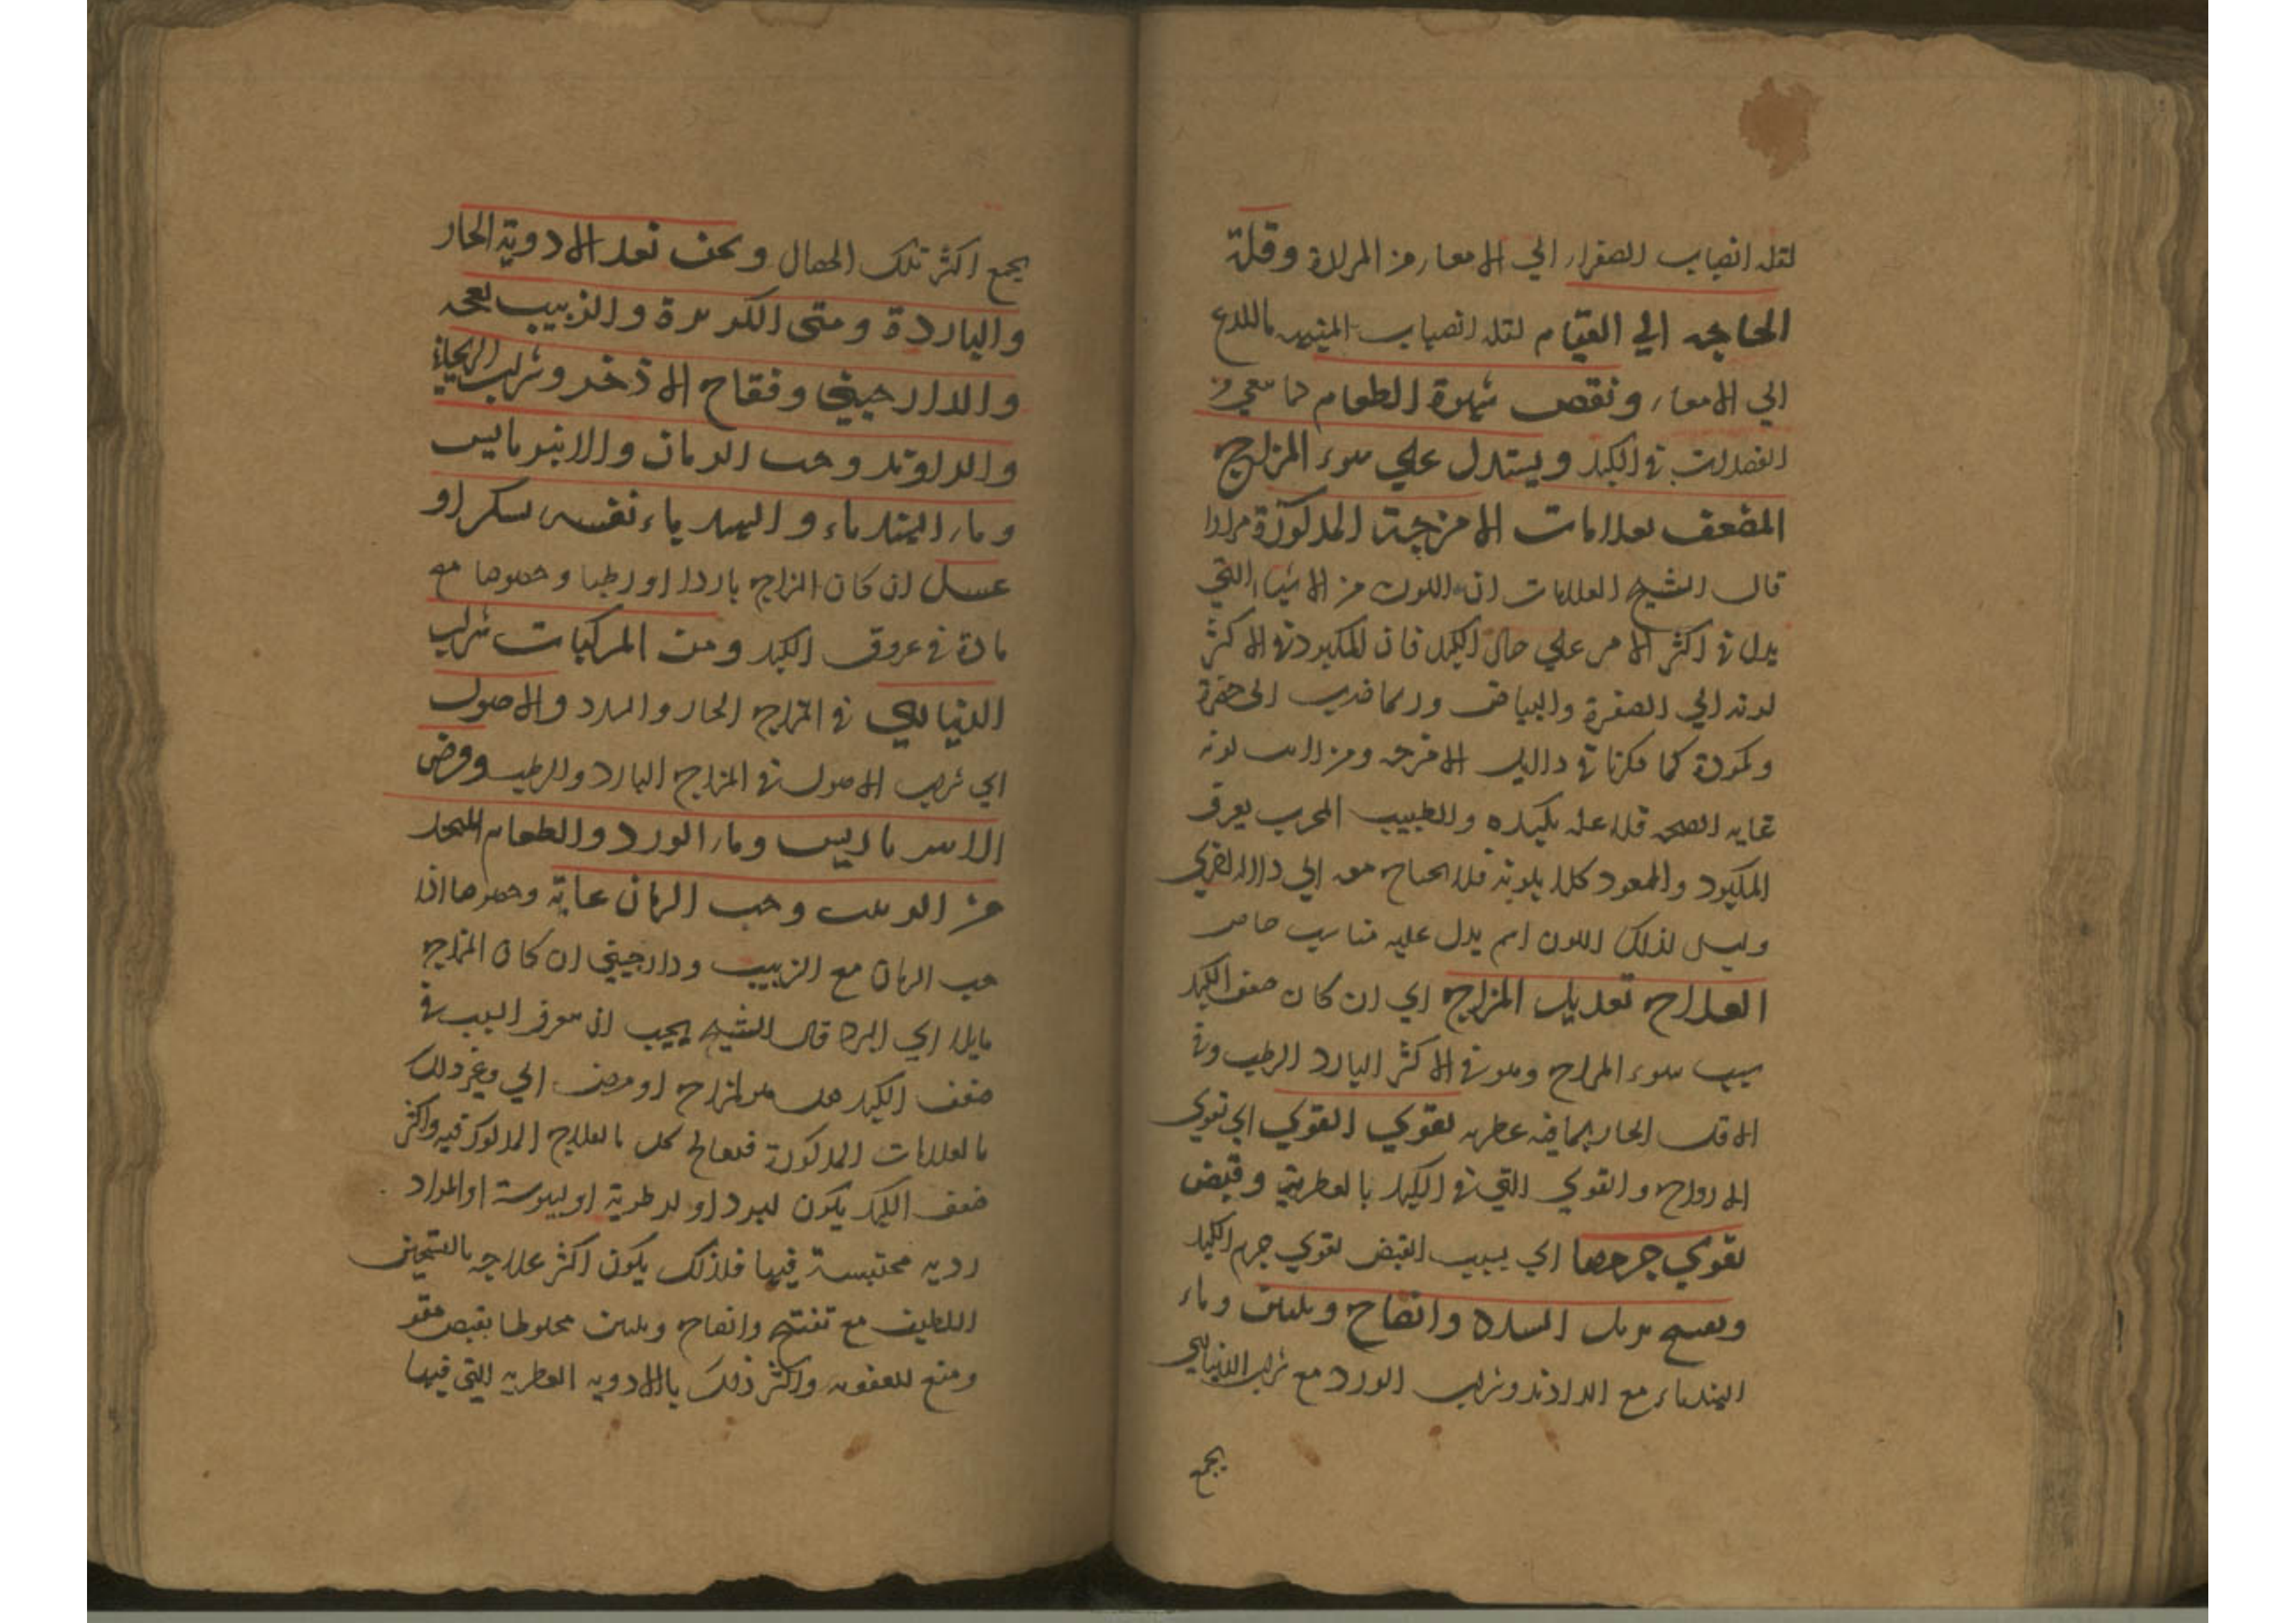 لقلة انصباب الصفراء الي الامعاء من المرارة وقلة
الحاجه الي القيام لقلة انصباب المنبهه باللدع
الي الامعاء ونقص شهوة الطعام لما بقي من
الفضلات في الكبد ويستدل علي سوء المزاج
المضعف بعلامات الامزجة المذكورة مرارا
قال الشيخ العلامات ان اللون من الاشياء التي
يدل في اكثر الامر علي حال الكبد فان المكبود في الاكثر
لونه الي الصفرة والبياض وربما ضرب الي خضرة
وكمودة كما ذكرنا في دلايل الامزجه ومن رايت لونه
غايه الصحه فلا علة بكبده والطبيب المجرب يعرف
المكبود والممعود كلا بلونه فلا يحتاج معه الي دلالة اخري
وليس لذلك اللون اسم يدل عليه مناسب خاص
العلاج تعديل المزاج اي ان كان ضعف الكبد
بسبب سوء المزاج وهو في الاكثر البارد الرطب وفي
الاقل الحار بما فيه عطريه لتقوي القوي اي تقوي
الارواح والقوي التي في الكبد بالعطرية وقبض
يقوي جرمها اي بسبب القبض يقوي جرم الكبد
وتفتيح يزيل السدد وانضاج وتليين وماء
الهندباء مع الراوند وشراب الورد مع شراب الديناري
يجمع
يجمع اكثر تلك الخصال ونحن نعد الادوية الحار
والباردة ومتي الكزبرة والزبيب بعجمه
والدارجيني وفقاح الاذخر وشراب الريحاني
والراوند وحب الرمان والانبرباريس
وماء الهندباء والهندباء نفسه بسكر او
عسل ان كان المزاج باردا او رطبا وخصوصا مع
مادة في عروق الكبد ومن المركبات شراب
الديناري في المزاج الحار والبارد والاصول
اي شراب الاصول في المزاج البارد والرطب وقرص
الامبرباريس وماء الورد والطعام المتخذ
من الزبيب وحب الرمان غاية وخصوصا اذا
حب الرمان مع الزبيب ودارجيني ان كان المزاج
مايلا الي البرد قال الشيخ يجب ان تعرف السبب في
ضعف الكبد هل هو لمزاج او مرض الي وغير ذلك
بالعلامات المذكورة فيعالج كل بالعلاج المذكور فيه واكثر
ضعف الكبد يكون لبرد او لرطوبة او ليبوسة او المواد
رديه محتبسة فيها فلذلك يكون اكثر علاجه بالتسخين
اللطيف مع تفتيح وانضاج وتليين مخلوطا بقبض مقو
ومنع للعفونه واكثر ذلك بالادويه العطريه التي فيها